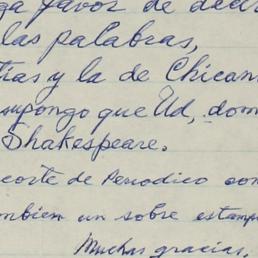 ga favor de decir
las palabras,
tias y la de Chican
supongo que Ud, dom
Shakespeare.
ecorte de Periodico con
mbien un sobre estamp
Muchas gracias,